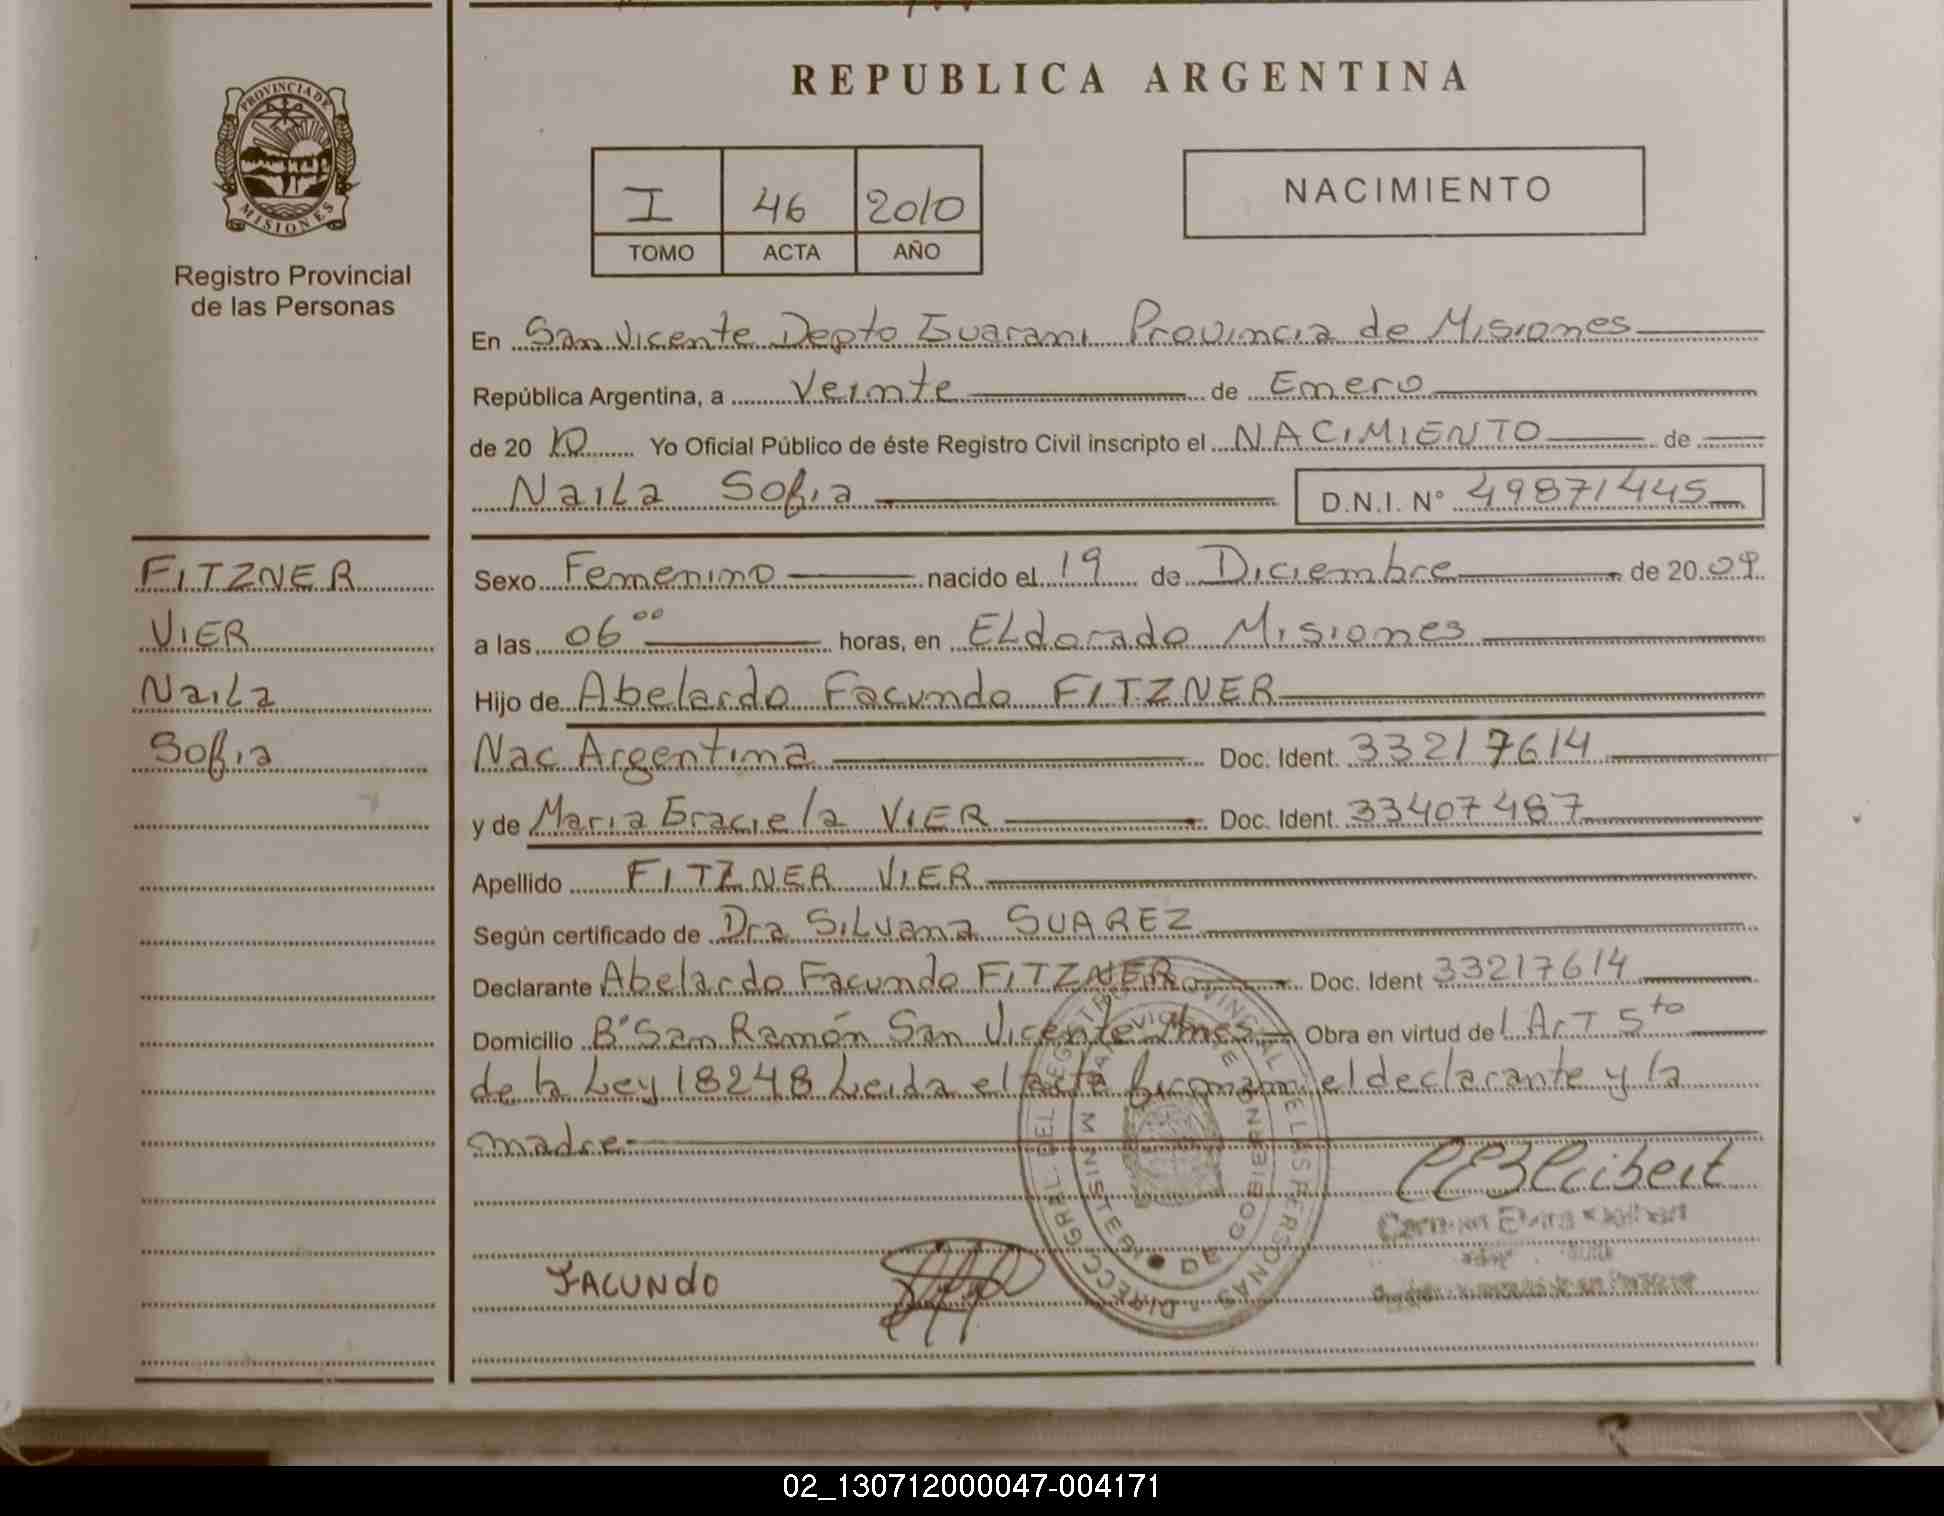 PROVINCIA DE
MISIONES
Registro Provincial
de las Personas
FITZNER
VIER
Naila
Sofia
REPUBLICA ARGENTINA
I 46 2010
TOMO ACTA AÑO
NACIMIENTO
En San Vicente Depto Guarani Provincia de Misiones
República Argentina, a Veinte de Enero
de 20 10 Yo Oficial Público de éste Registro Civil inscripto el NACIMIENTO de
Naila Sofia D.N.I. Nº 49871445
Sexo Femenino nacido el 19 de Diciembre de 20 09
a las 06 00 horas, en ELdorado Misiones
Hijo de Abelardo Facundo FITZNER
Nac Argentina Doc. Ident. 33217614
y de Maria Graciela VIER Doc. Ident. 33407487
Apellido FITZNER VIER
Según certificado de Dra SiLvana SUAREZ
Declarante Abelardo Facundo FITZNER Doc. Ident 33217614
Domicilio Bº San Ramón San Vicente Mnes Obra en virtud del ArT 5to
de la Ley 18248 Leida el acta firman el declarante y la
madre
FACUNDO
02_130712000047-004171